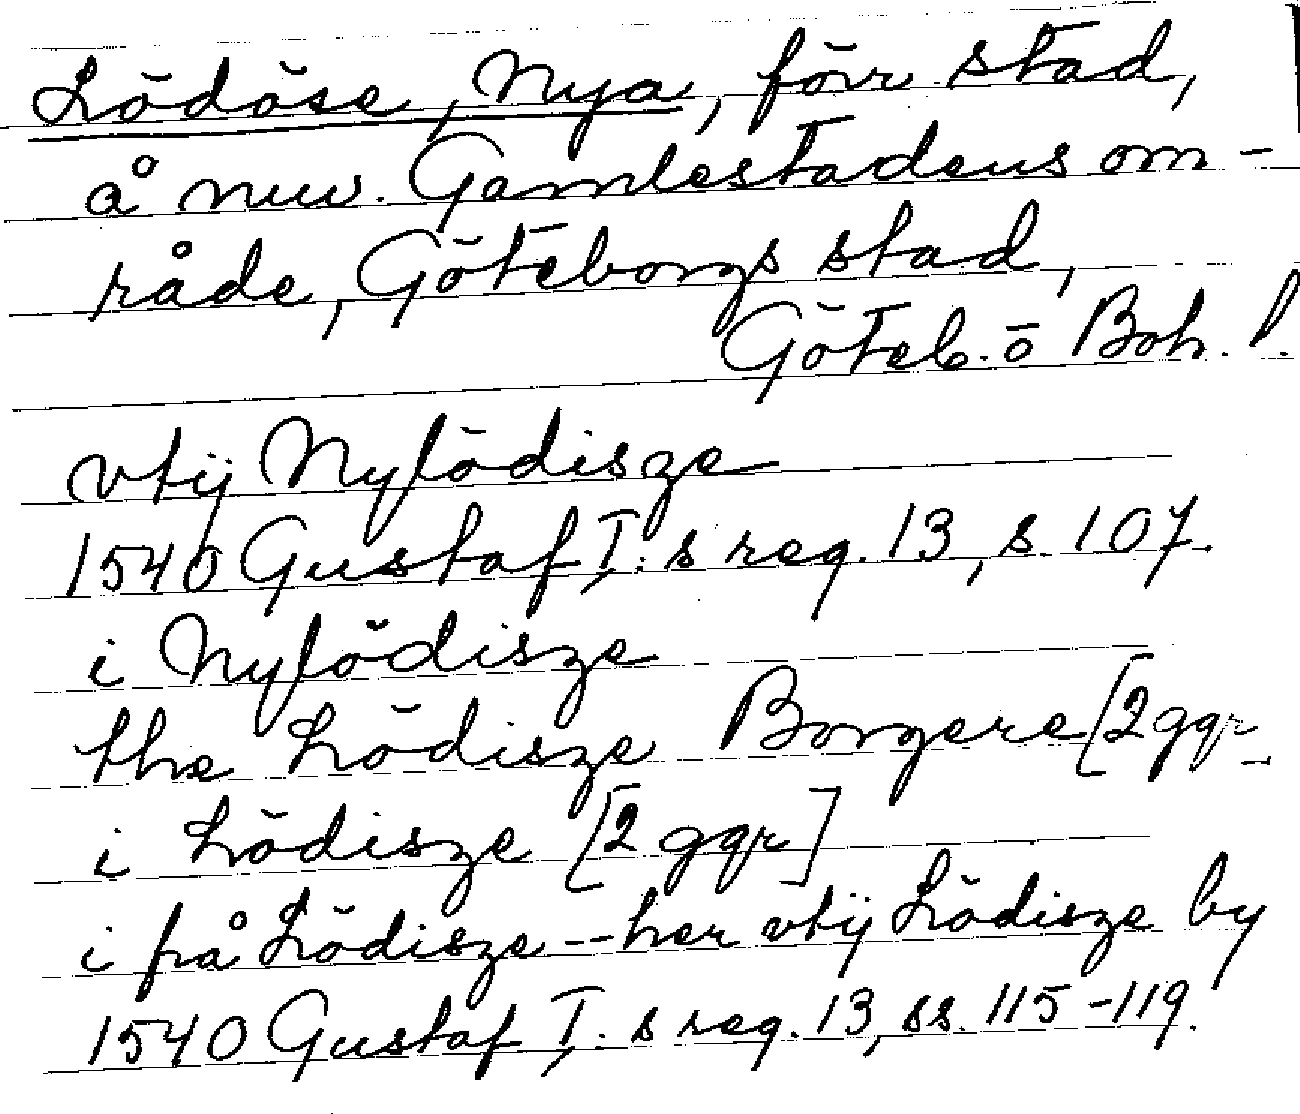 Lödöse, Nya, förr stad,
å nuv. Gamlestadens om-
råde, Göteborgs stad,
Göteb. o Boh. l.
vtij Nylödisze
1540 Gustaf I:s reg. 13, s 107.
i Nylödisze
the Lödisze Borgere [2 ggr
i Lödisze [2 ggr]
i frå Lödisze -- her vtij Lödisze by
1540 Gustaf I:s reg. 13, ss. 115-119.